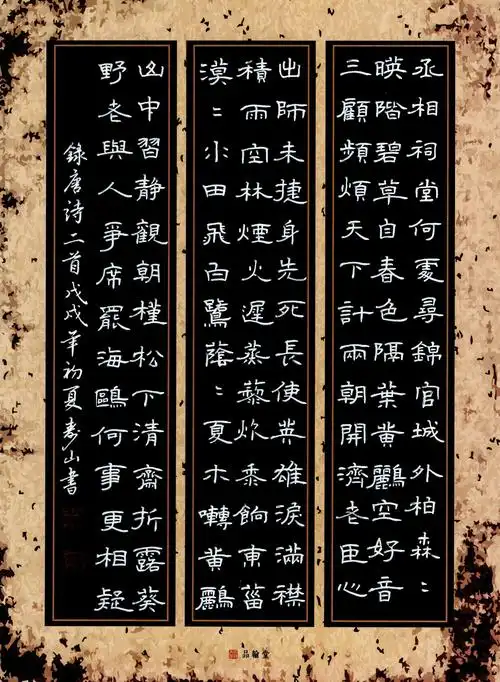 丞相祠堂何處尋錦官城外柏森〻
暎階碧草自春色隔葉黄鸝空好音
三顧頻煩天下計兩朝開濟老臣心
出師未捷身先死長使英雄淚滿襟
積雨空林煙火遲蒸藜炊黍餉東菑
漠〻水田飛白鷺蔭〻夏木囀黄鸝
山中習静觀朝槿松下清齋折露葵
野老與人爭席罷海鷗何事更相疑
錄唐詩二首戊戌年初夏山書
品翰堂